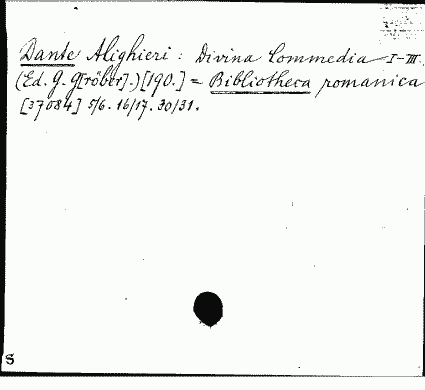 Dante Alighieri: Divina Commedia I-III.
(Ed. G. G[röber].) [190.] = Bibliotheca romanica
[37084] 5/6. 16/17. 30/31.
S